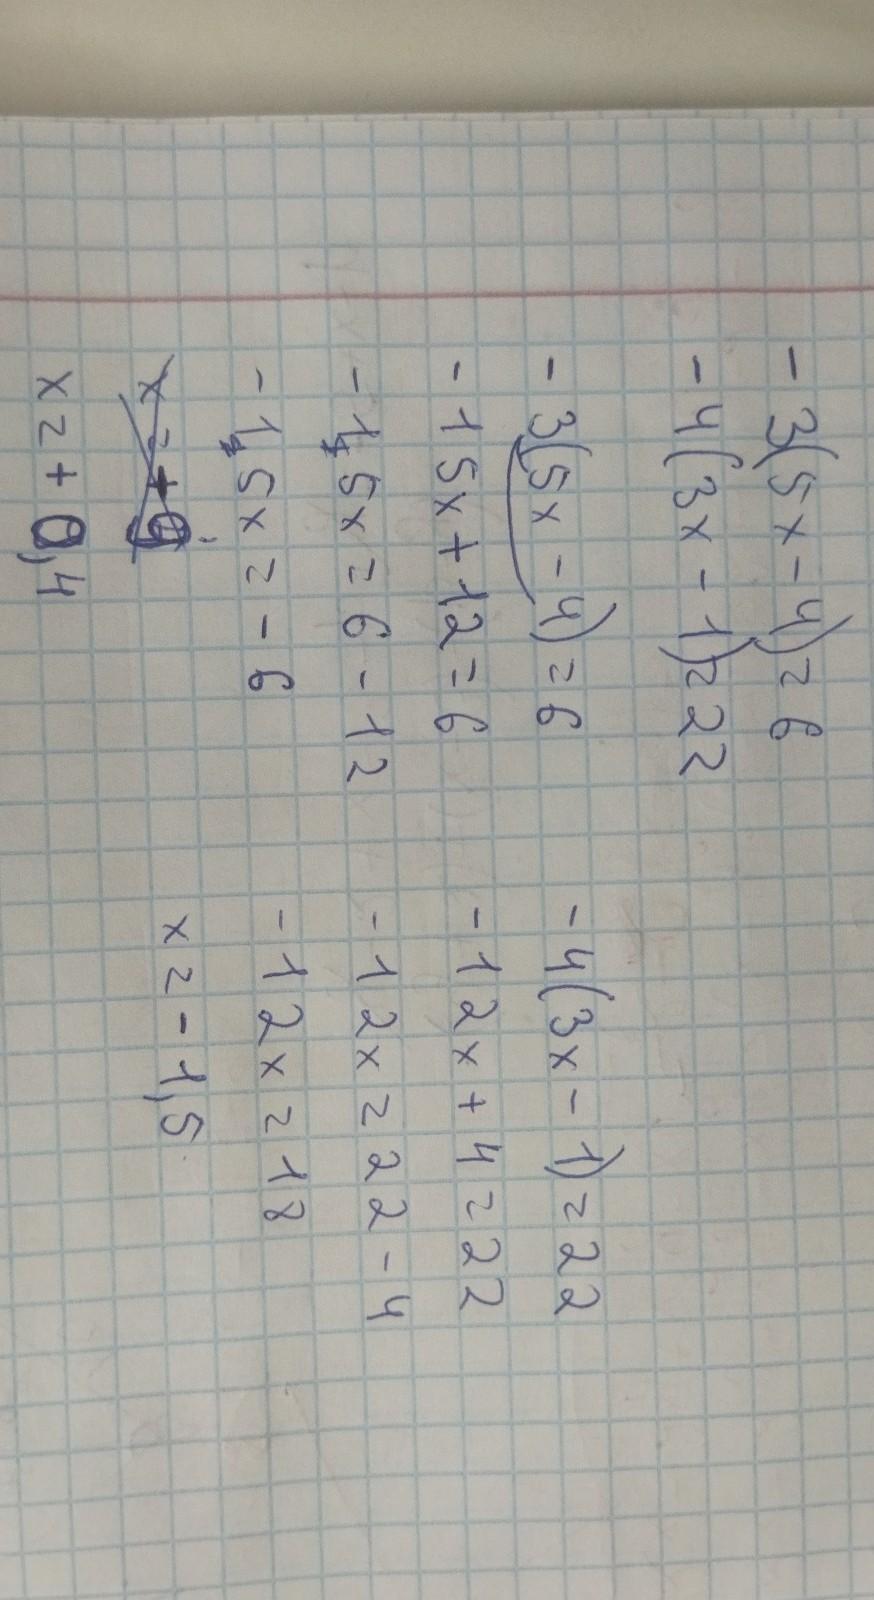 - 3(5x - 4) = 6
- 4(3x - 1) = 22
- 3(5x - 4) = 6
- 15x + 12 = 6
- 15x = 6 - 12
- 15x = - 6
x = + 0,4
- 4(3x - 1) = 22
- 12x + 4 = 22
- 12x = 22 - 4
- 12x = 18
x = - 1,5